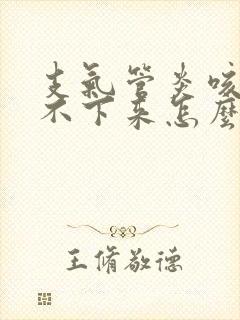 支氣管炎咳
不下來怎麼
王脩敬德